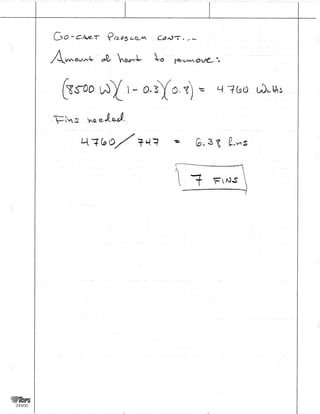 GO-CART PROBLEM CONT...
Amount of heat to remove:
(8500 W)(1-0.3)(0.8) = 4760 Watts
Fins needed
4760/747 = 6.38 fins
7 FINS
TOPS